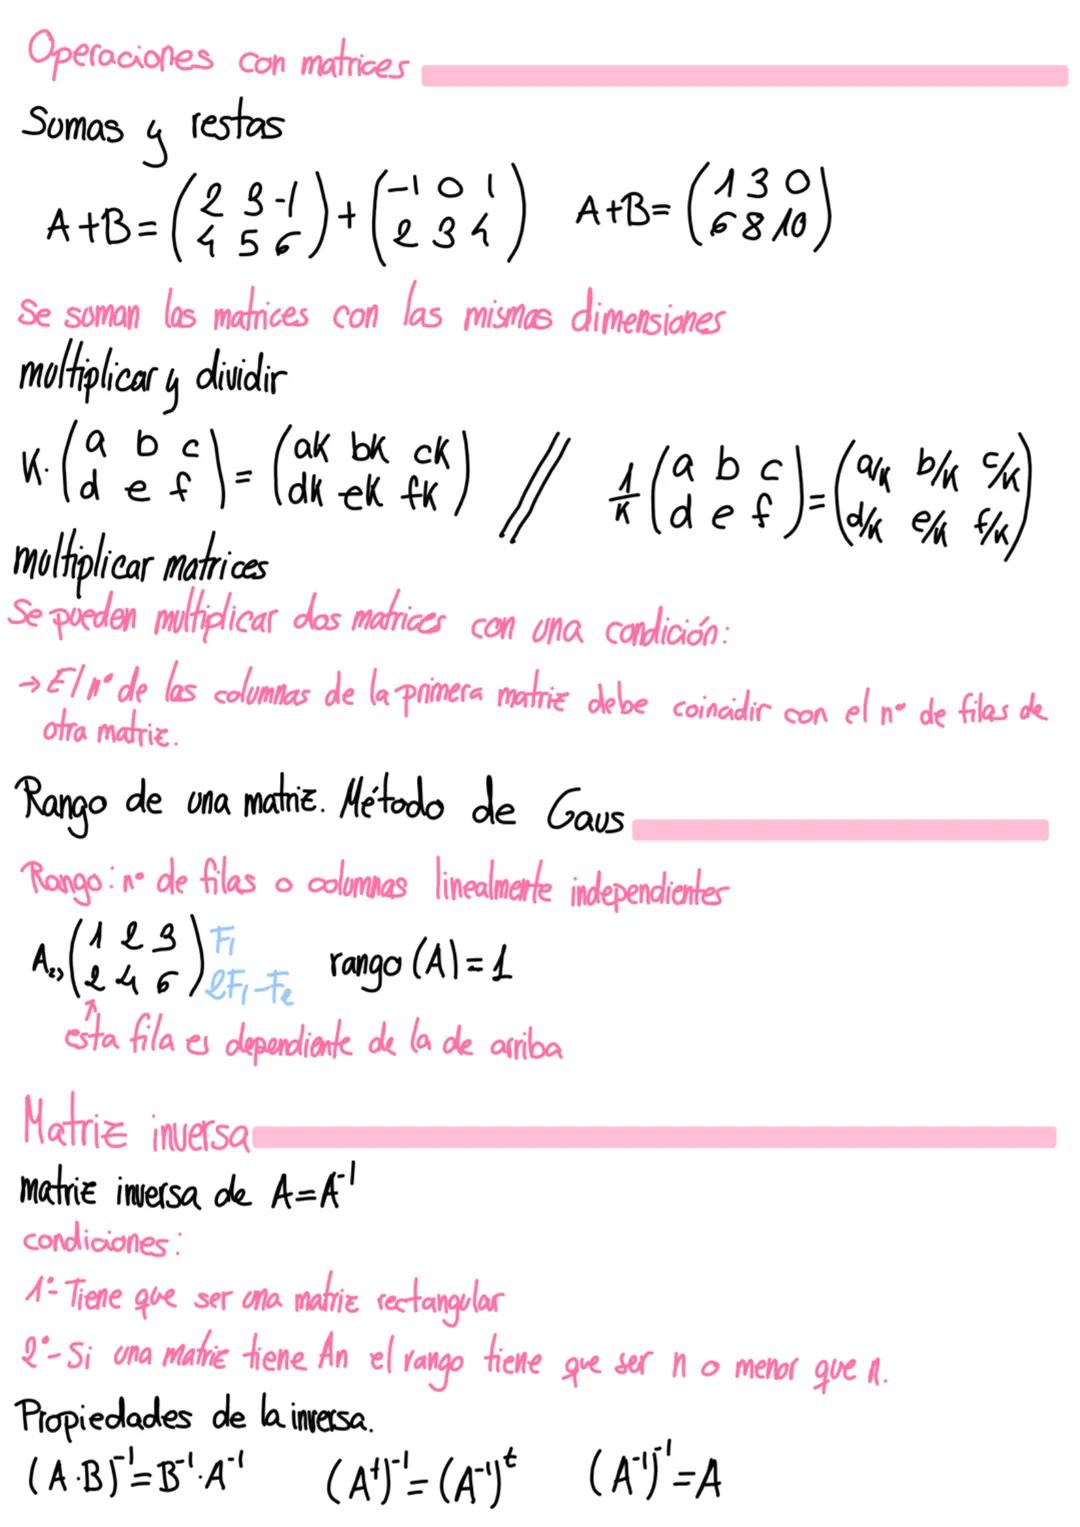 Operaciones con matrices
Somas y restas
A+B= (2 3 -1 / 4 5 6) + (-1 0 1 / 2 3 4)   A+B= (1 3 0 / 6 8 10)
Se soman las matrices con las mismas dimensiones
multiplicar y dividir
K· (a b c / d e f) = (ak bk ck / dk ek fk) // 1/K (a b c / d e f) = (a/k b/k c/k / d/k e/k f/k)
multiplicar matrices
Se pueden multiplicar dos matrices con una condición:
→ El nº de las columnas de la primera matriz debe coincidir con el nº de filas de
otra matriz.
Rango de una matriz. Método de Gaus
Rango: nº de filas o columnas linealmente independientes
A (1 2 3 / 2 4 6) F1 / 2F1-F2   rango (A) = 1
esta fila es dependiente de la de arriba
Matriz inversa
matriz inversa de A=A⁻¹
condiciones:
1º- Tiene que ser una matriz rectangular
2º- Si una matriz tiene An el rango tiene que ser n o menor que n.
Propiedades de la inversa.
(A·B)⁻¹=B⁻¹·A⁻¹   (Aᵗ)⁻¹=(A⁻¹)ᵗ   (A⁻¹)⁻¹=A